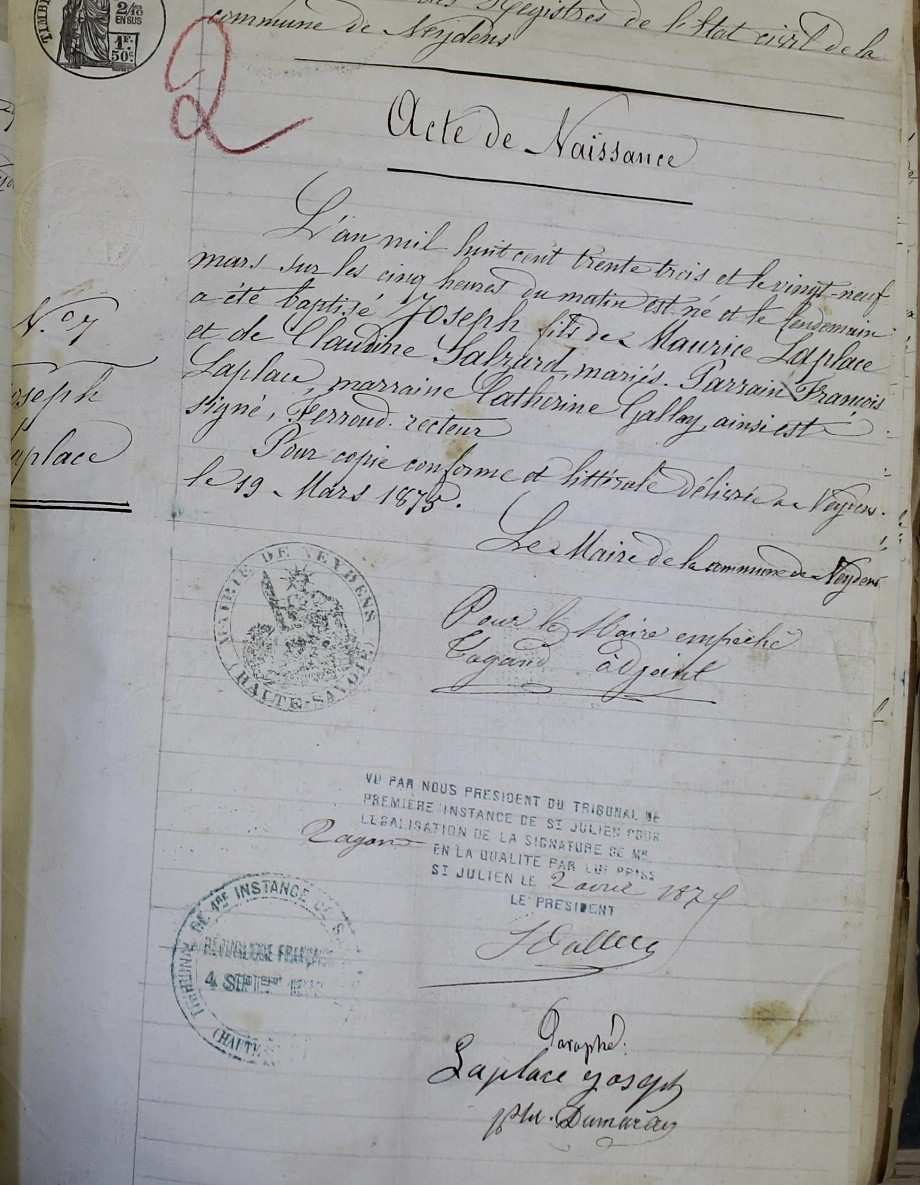 TIMB
2/10
EN SUS
1F.
50c
des Registres de l'Etat civil de la
commune de Neydens
2
Acte de Naissance
L'an mil huit cent trente trois et le vingt-neuf
mars sur les cinq heures du matin est né et le lendemain
a été baptisé Joseph fils de Maurice Laplace
et de Claudine Salzard, mariés. Parrain François
Laplace, marraine Catherine Gallay, ainsi est
signé, Ferroud. recteur
N.o 7
oseph
aplace
Pour copie conforme et littérale délivrée à Neydens.
le 19 Mars 1875.
Le Maire de la commune de Neydens
MAIRIE DE NEYDENS
(HAUTE-SAVOIE)
Pour le Maire empêché
adjoint
VU PAR NOUS PRESIDENT DU TRIBUNAL DE
PREMIÈRE INSTANCE DE ST JULIEN POUR
LEGALISATION DE LA SIGNATURE DE MR
EN LA QUALITE PAR LUI PRISE
ST JULIEN LE 2 avril 1875
LE PRESIDENT
TRIBUNAL DE 1ERE INSTANCE DE S
RÉPUBLIQUE FRANÇAI
4 SEPTEM
(HAUTE
Paraphé:
Laplace Joseph